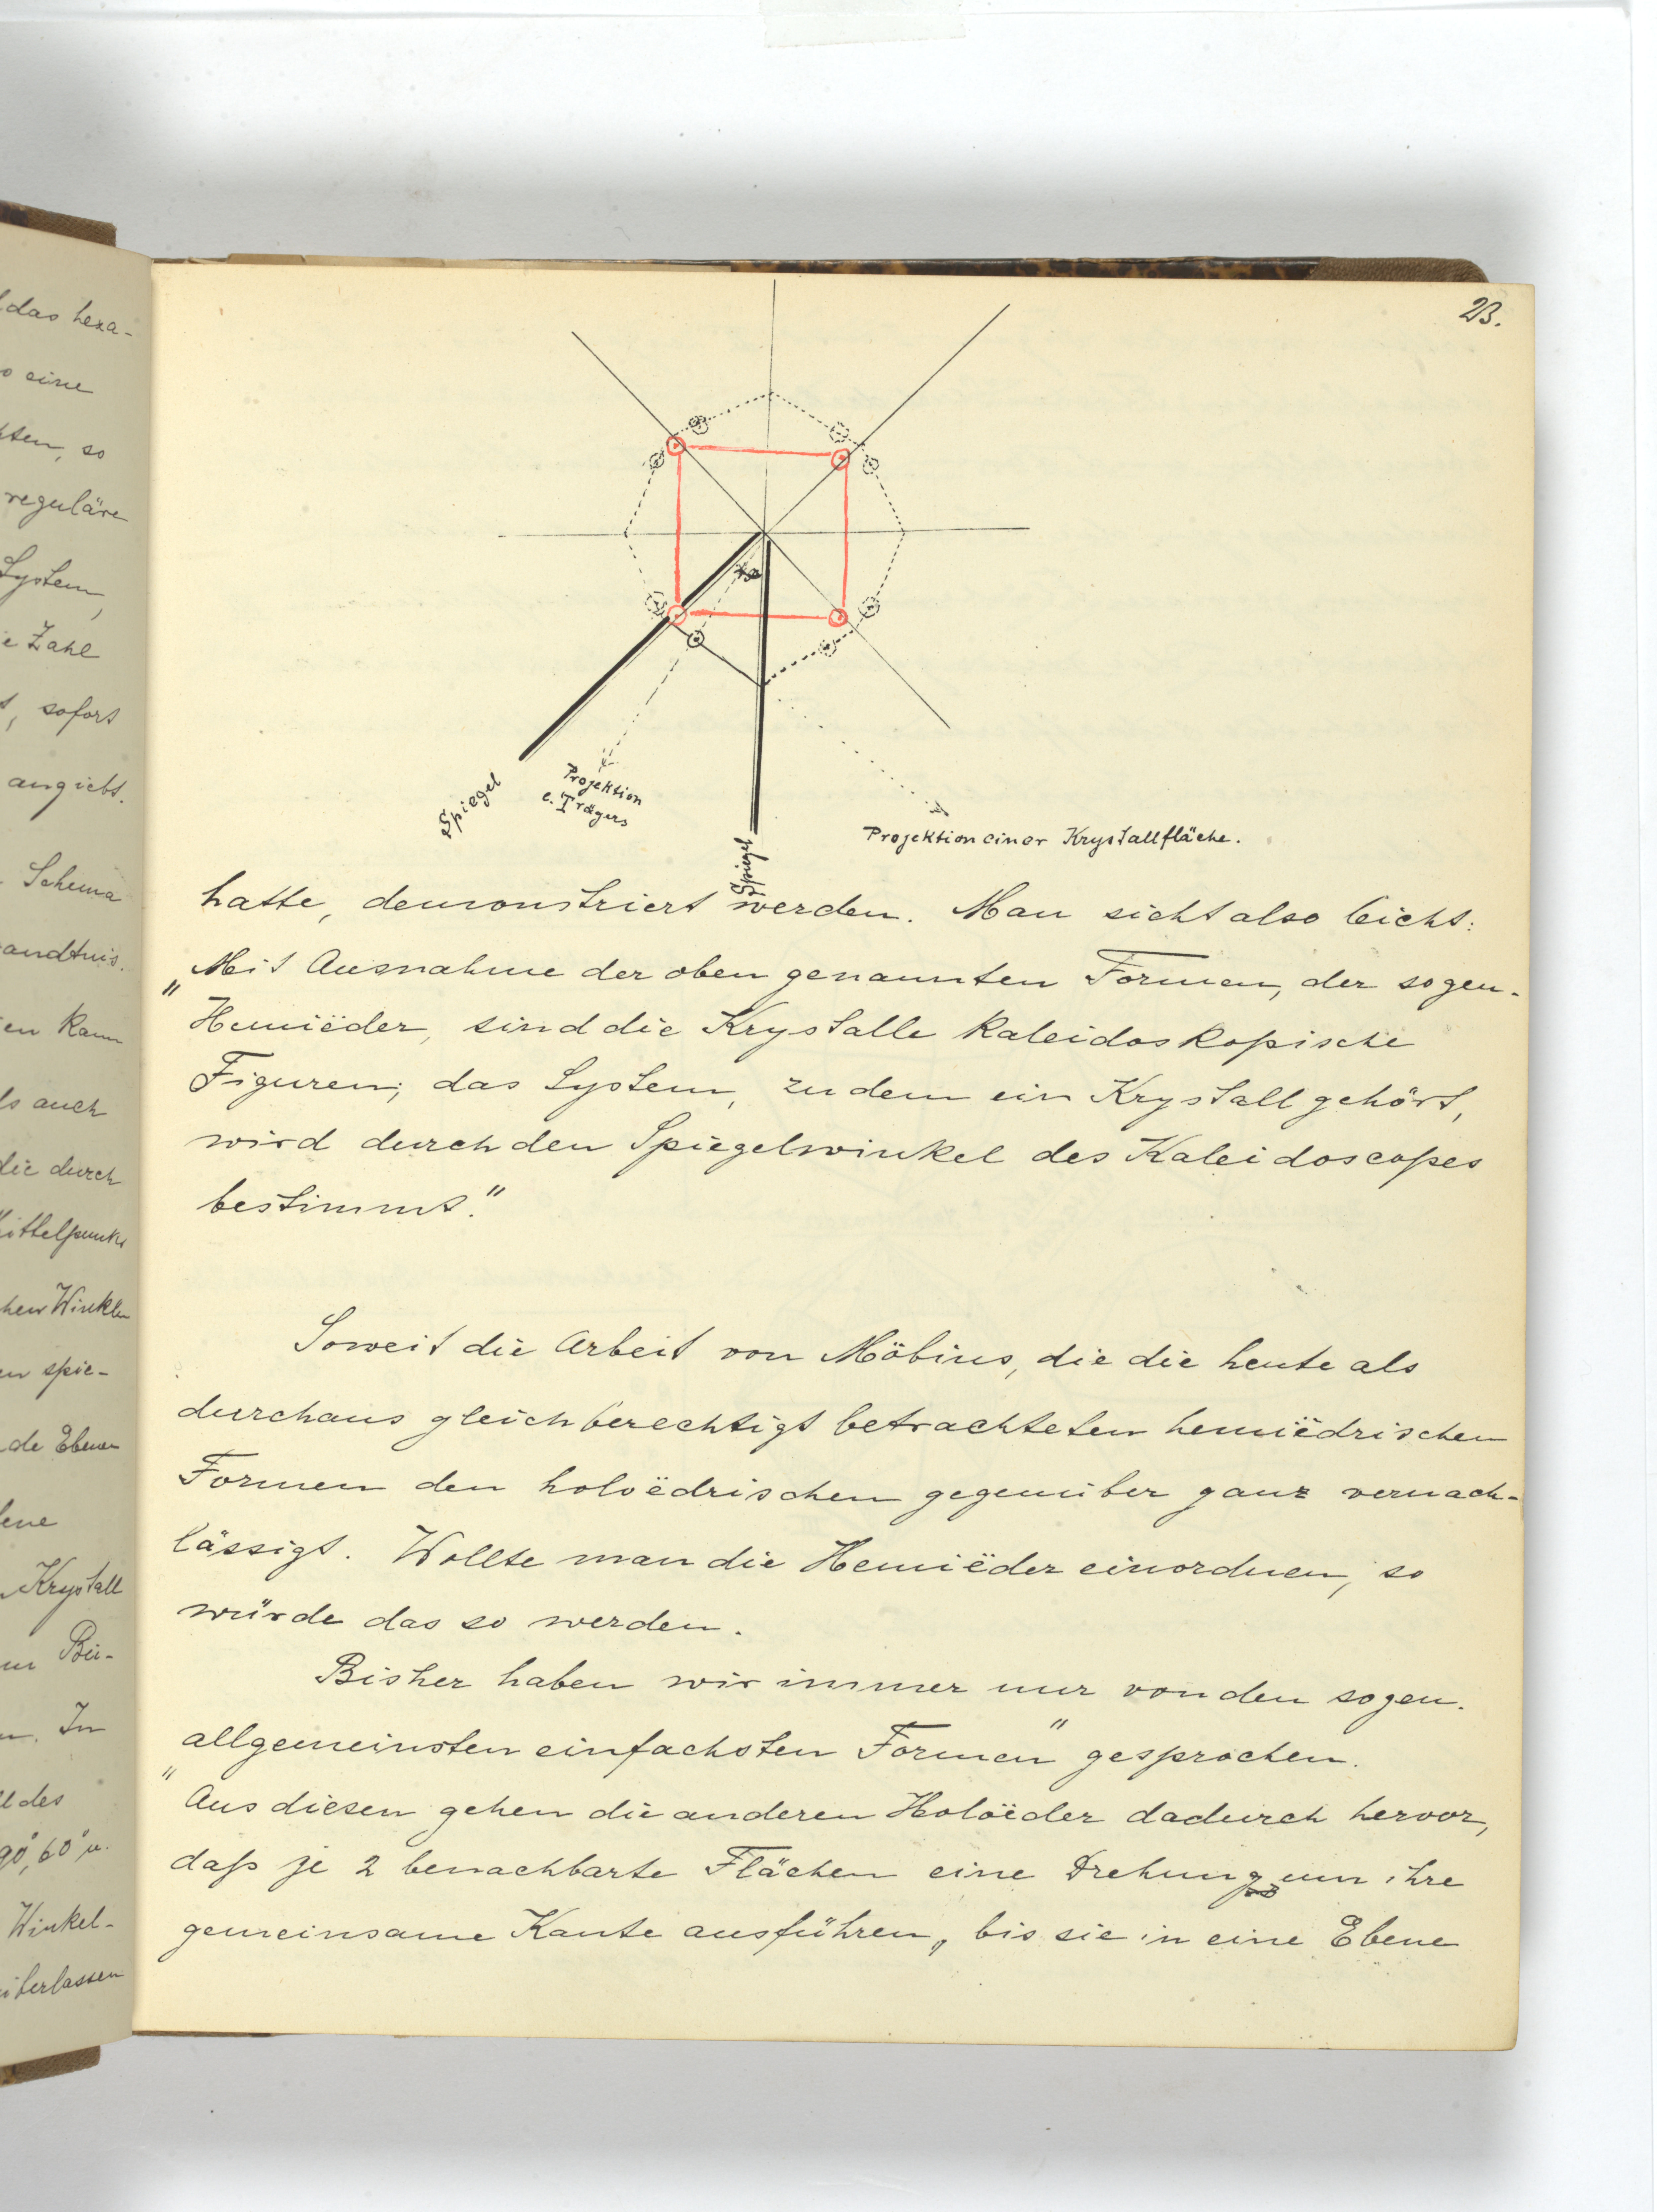 das hexa-
eine
so
reguläre
System,
Zahl
sofort
angiebt.
Schema
kann
auch
die durch
Mittelpunkt
Winkeln
spie-
de Ebenen
Krystall
Bü-
In
des
90°, 60° u.
Winkel-
überlassen
23.
Spiegel
Projektion
e. Trägers
Spiegel
Projektion einer Krystallfläche.
hatte, demonstriert werden. Man sieht also leicht:
„Mit Ausnahme der oben genannten Formen, der sogen.
Hemiëder, sind die Krystalle kaleidoskopische
Figuren; das System, zu dem ein Krystall gehört,
wird durch den Spiegelwinkel des Kaleidoscopes
bestimmt."
Soweit die Arbeit von Möbius, die die heute als
durchaus gleichberechtigt betrachteten hemiëdrischen
Formen den holoëdrischen gegenüber ganz vernach-
lässigt. Wollte man die Hemiëder einordnen, so
würde das so werden.
Bisher haben wir immer nur von den sogen.
„allgemeinsten einfachsten Formen" gesprochen.
Aus diesen gehen die anderen Holoëder dadurch hervor,
daß je 2 benachbarte Flächen eine Drehung um ihre
gemeinsame Kante ausführen, bis sie in eine Ebene